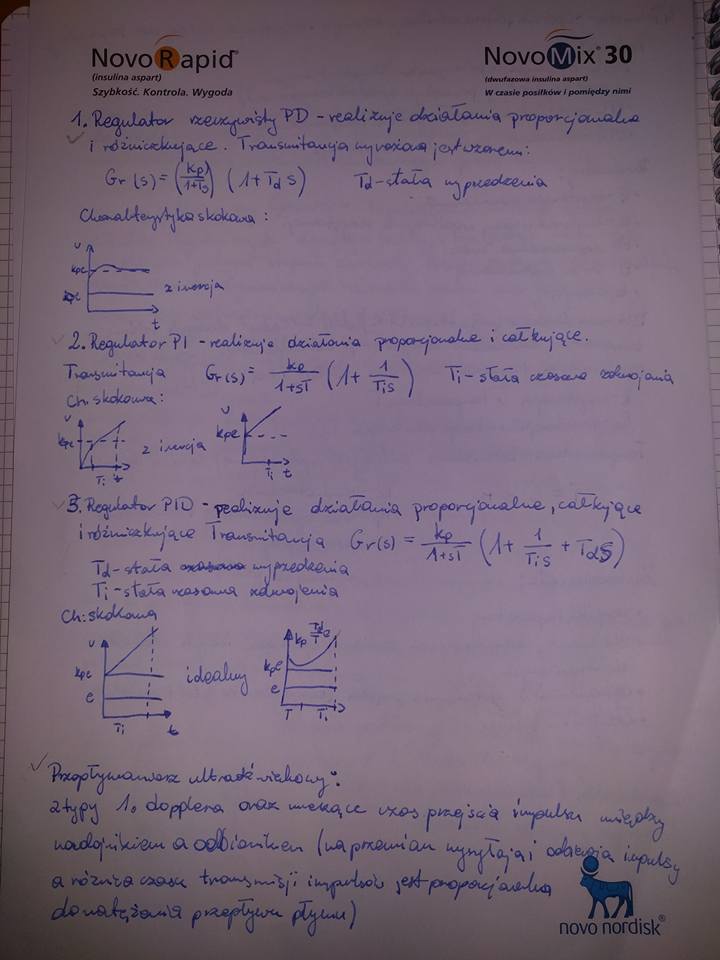 NovoRapid®
(insulina aspart)
Szybkość. Kontrola. Wygoda
NovoMix® 30
(dwufazowa insulina aspart)
W czasie posiłków i pomiędzy nimi
1. Regulator rzeczywisty PD - realizuje działania proporcjonalne
i różniczkujące. Transmitancja wyrażona jest wzorem:
Gr(s) = (kp/1+Ts) (1+Td s) Td - stała wyprzedzenia
Charakterystyka skokowa:
v
kpe
kpe
z inercją
t
2. Regulator PI - realizuje działania proporcjonalne i całkujące.
Transmitancja Gr(s) = kp/1+sT (1+ 1/Tis) Ti - stała czasowa zdwojenia
Ch. skokowa:
v
kpe
z inercją
Ti t
v
kpe
Ti t
3. Regulator PID - realizuje działania proporcjonalne, całkujące
i różniczkujące Transmitancja Gr(s) = kp/1+sT (1+ 1/Tis + Tds)
Td - stała czasowa wyprzedzenia
Ti - stała czasowa zdwojenia
Ch: skokowa
v
kpe
e
Ti t
idealny
kp Td/T e
kpe
e
T Ti
Przepływomierz ultradźwiękowy:
2 typy 1. dopplera oraz mierzące czas przejścia impulsu między
nadajnikiem a odbiornikiem (na przemian wysyłają i odbierają impulsy
a różnica czasu transmisji impulsów jest proporcjonalna
do natężenia przepływu płynu)
novo nordisk®